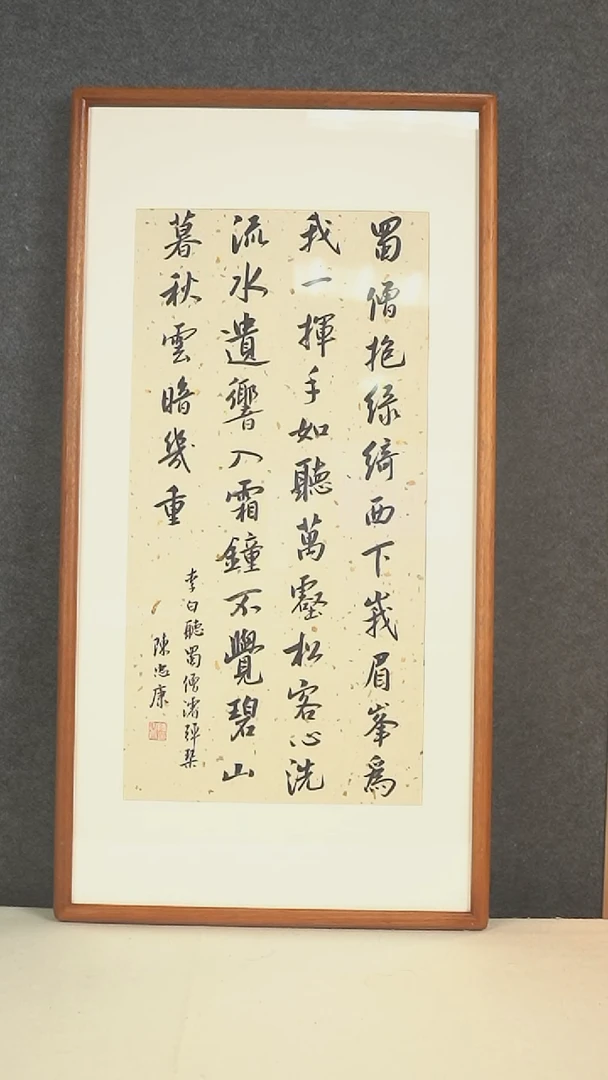 蜀僧抱緑綺西下峩眉峯爲
我一揮手如聽萬壑松客心洗
流水遺響入霜鐘不覺碧山
暮秋雲暗幾重
李白聽蜀僧濬弹琹
陳忠康